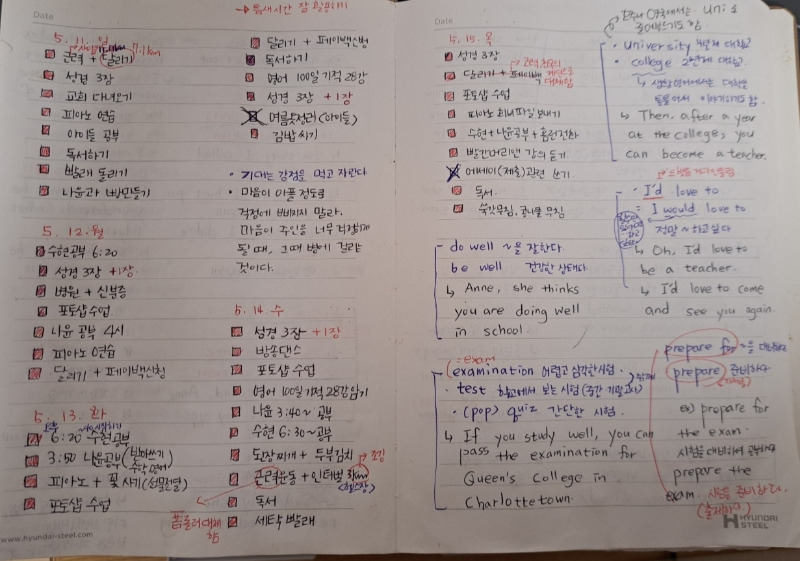 → 틈새시간 잘 활용하기
Date
5. 11. 일
근력 + 달리기 7.1km
성경 3장
교회 다녀오기
피아노 연습
아이들 공부
독서하기
빨래 돌리기
나윤과 빵 만들기
5. 12. 월
수현공부 6:20
성경 3장 +1장
병원 + 신분증
포토샵 수업
나윤 공부 4시
피아노 연습
달리기 + 페이백신청
5. 13. 화
6:20 수현공부
3:50 나윤공부 (받아쓰기
수학, 영어)
피아노 + 꽃 사기 (선물전달)
포토샵 수업
www.hyundai-steel.com
달리기 + 페이백신청
독서하기
영어 100일 기적 28강
성경 3장 +1장
여름옷정리 (아이들)
김밥 싸기
• 기대는 감정을 먹고 자란다
• 마음이 아플 정도로
걱정에 빠지지 말라.
마음이 주인을 너무 걱정하게
될 때, 그때 병에 걸리는
것이다.
5. 14. 수
성경 3장 +1장
방송댄스
포토샵 수업
영어 100일 기적 28강 암기
나윤 3:40~ 공부
수현 6:30~ 공부
된장찌개 + 두부김치
근력운동 + 인터벌
<헬스장>
독서
세탁 빨래
Date
호주나 영국에서는 uni 로
줄여부르기도 함
5. 15. 목
성경 3장
달리기 + 페이백
포토샵 수업
피아노 회비 파일 보내기
수현 + 나윤공부 + 홈런전화
빨간머리앤 강의 듣기
에세이 (제출) 관련 쓰기
독서
쑥갓무침, 콩나물 무침
• university 4년제 대학교
• college 2년제 대학교
↳ 생활영어에서는 대학을
통틀어서 이야기하기도 함.
↳ Then, after a year
at the college, you
can become a teacher.
I'd love to
= I would love to
정말 ~하고싶다
↳ Oh, I'd love to
be a teacher.
↳ I'd love to come
and see you again.
do well ~을 잘한다
be well 건강한 상태다
↳ Anne, she thinks
you are doing well
in school.
(= exam)
examination 어렵고 심각한시험.
• test 학교에서 보는 시험 (중간 기말고사)
• (pop) quiz 간단한 시험.
↳ If you study well, you can
pass the examination for
Queen's College in
Charlottetown.
prepare for ~을 대비하다
prepare 준비하다
ex) prepare for
the exam.
시험을 대비하여 공부하다
prepare the
exam 시험을 준비하다.
(출제하다)
HYUNDAI
STEEL